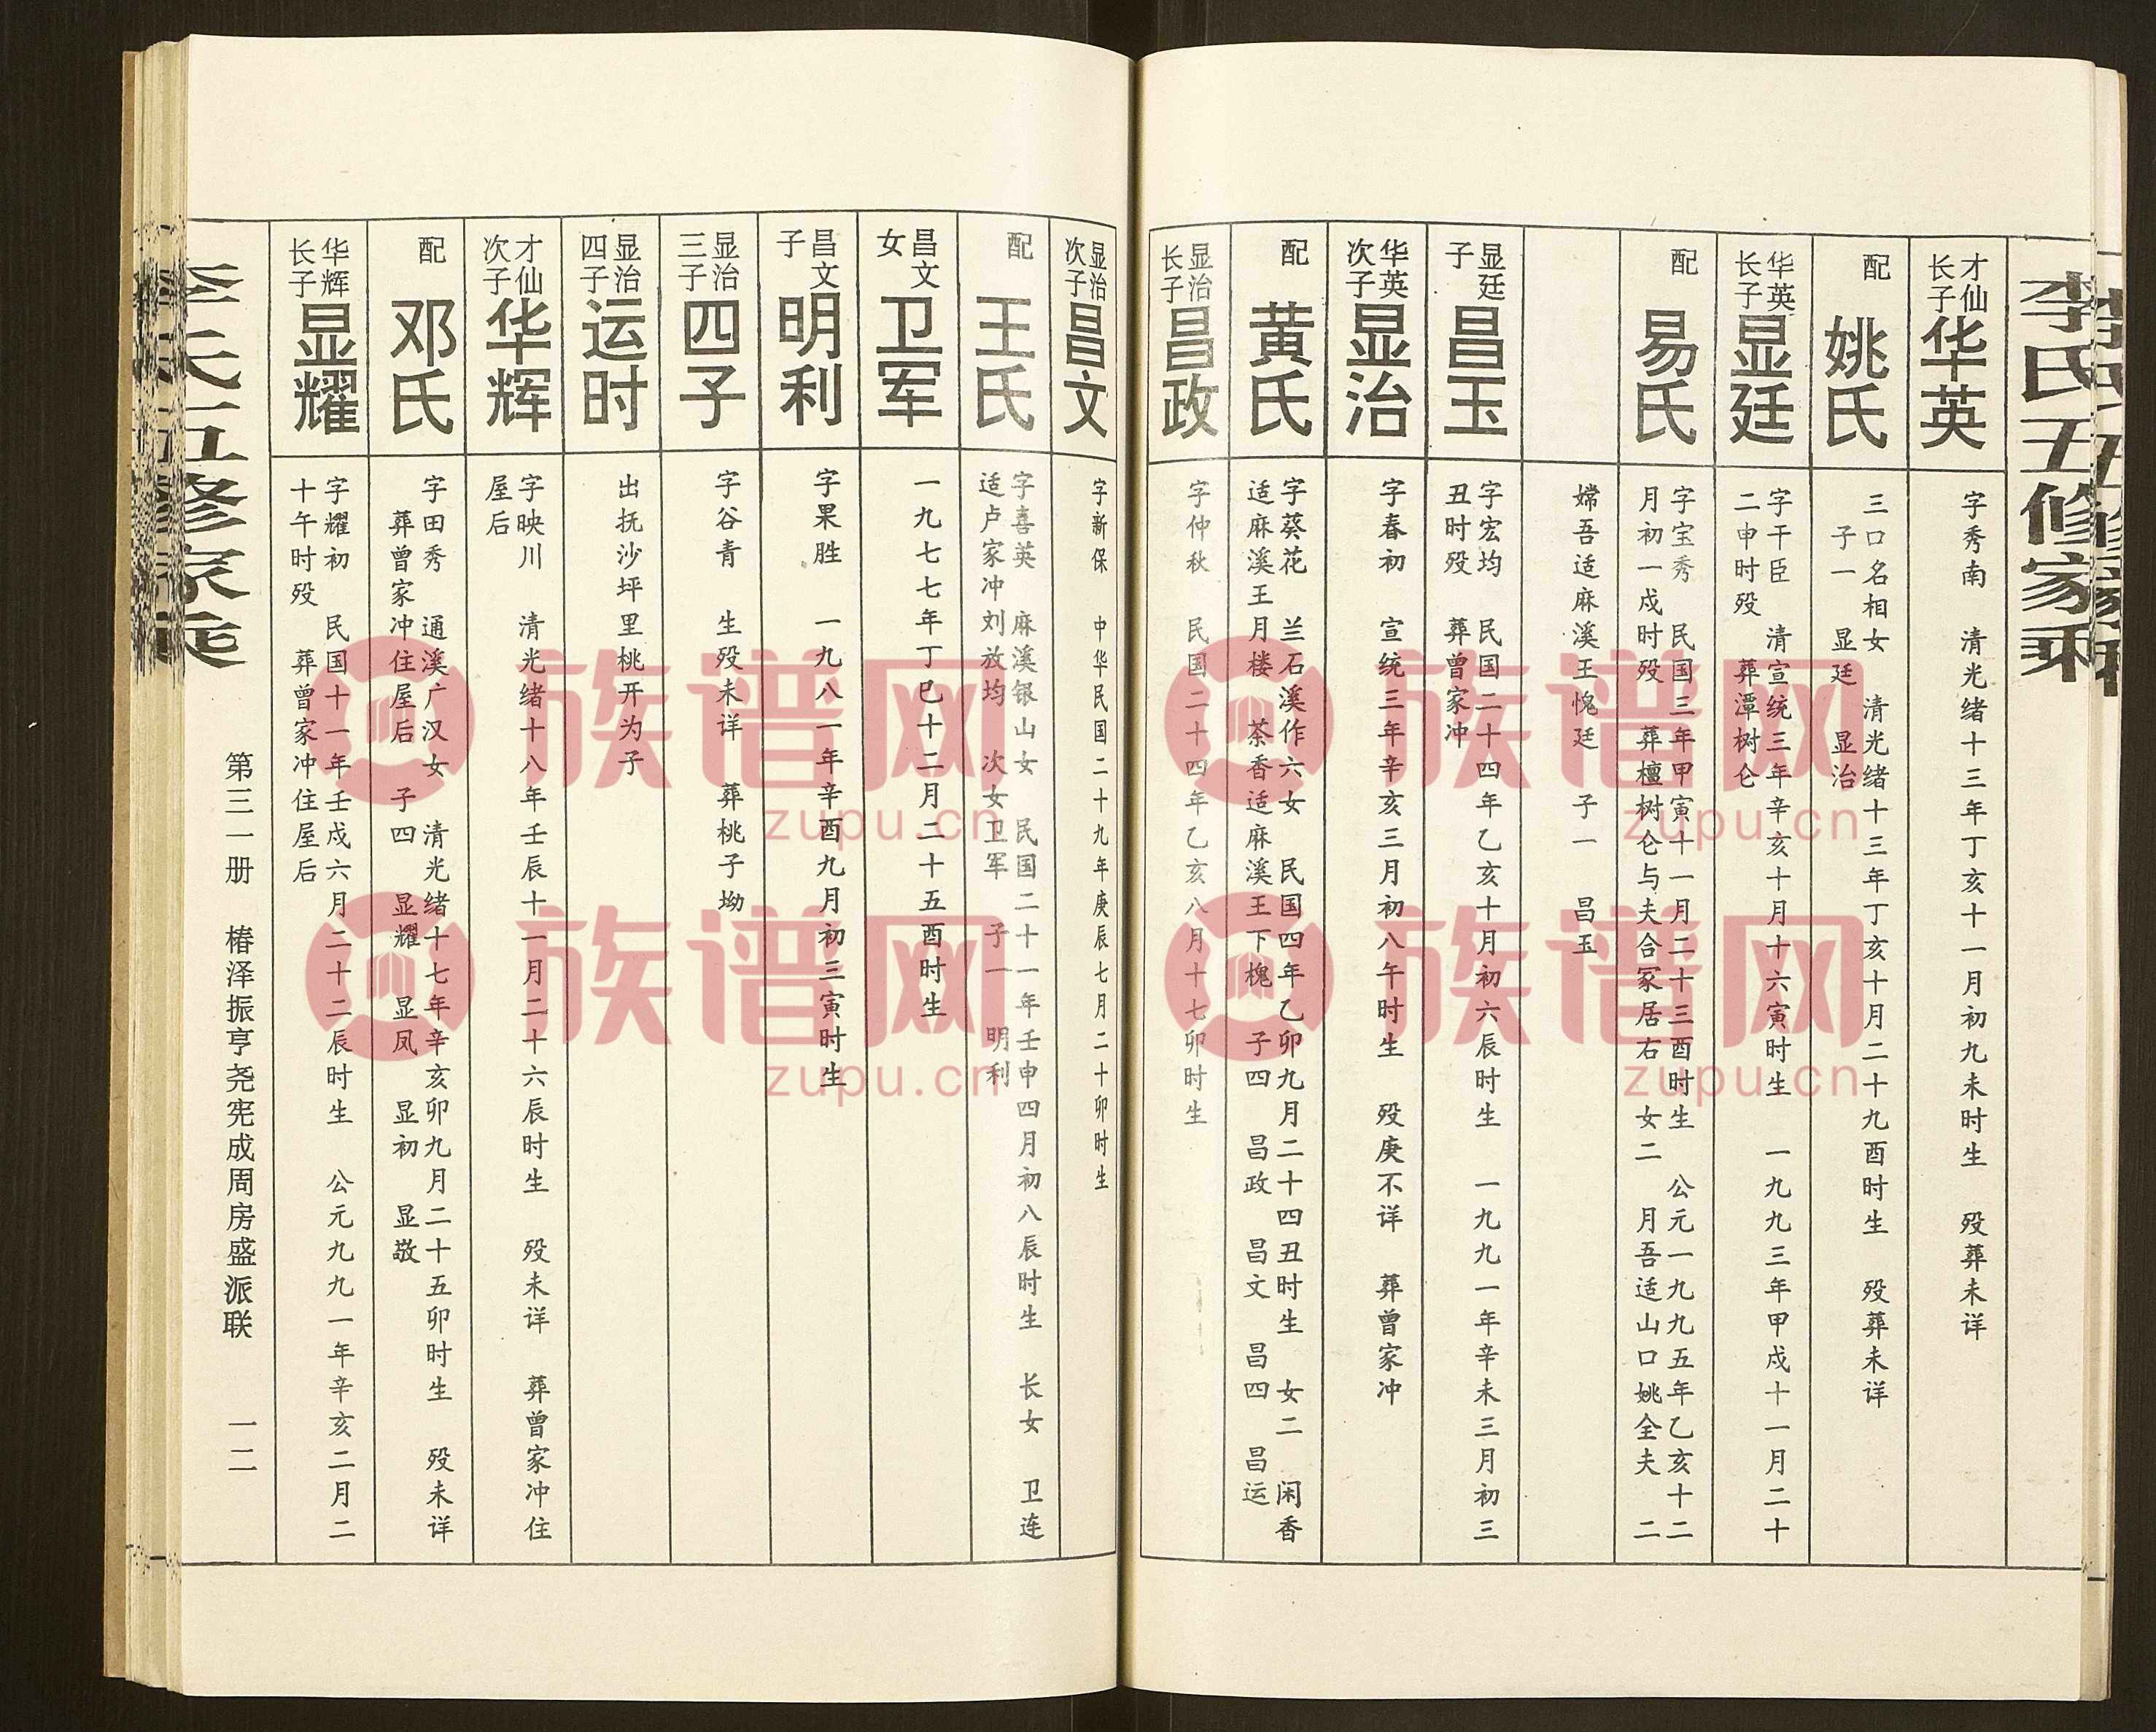 李氏五修家乘
才仙长子 华英
字秀南 清光绪十三年丁亥十一月初九未时生 殁葬未详
配 姚氏
三口名相女 清光绪十三年丁亥十月二十九酉时生 殁葬未详
子一 显廷 显治
华英长子 显廷
字干臣 清宣统三年辛亥十月十六寅时生 一九九三年甲戌十一月二十
二申时殁 葬潭树仑
配 易氏
字宝秀 民国三年甲寅十一月二十三酉时生 公元一九九五年乙亥十二
月初一戍时殁 葬檀树仑与夫合冢居右 女二 月吾适山口姚全夫 二
嫦吾适麻溪王愧廷 子一 昌玉
显廷子 昌玉
字宏均 民国二十四年乙亥十月初六辰时生 一九九一年辛未三月初三
丑时殁 葬曾家冲
华英次子 显治
字春初 宣统三年辛亥三月初八午时生 殁庚不详 葬曾家冲
配 黄氏
字葵花 兰石溪作六女 民国四年乙卯九月二十四丑时生 女二 闲香
适麻溪王月楼 茶香适麻溪王下槐 子四 昌政 昌文 昌四 昌运
显治长子 昌政
字仲秋 民国二十四年乙亥八月十七卯时生
显治次子 昌文
字新保 中华民国二十九年庚辰七月二十卯时生
配 王氏
字喜英 麻溪银山女 民国二十一年壬申四月初八辰时生 长女 卫连
适卢家冲刘放均 次女卫军 子一 明利
昌文女 卫军
一九七七年丁巳十二月二十五酉时生
昌文子 明利
字果胜 一九八一年辛酉九月初三寅时生
显治三子 四子
字谷青 生殁未详 葬桃子坳
显治四子 运时
出抚沙坪里桃开为子
才仙次子 华辉
字映川 清光绪十八年壬辰十一月二十六辰时生 殁未详 葬曾家冲住
屋后
配 邓氏
字田秀 通溪广汉女 清光绪十七年辛亥卯九月二十五卯时生 殁未详
葬曾家冲住屋后 子四 显耀 显凤 显初 显敬
华辉长子 显耀
字耀初 民国十一年壬戌六月二十二辰时生 公元九九一年辛亥二月二
十午时殁 葬曾家冲住屋后
李氏五修家乘
第三一册 椿泽振亨尧宪成周房盛派联 一二
族谱网
zupu.cn
族谱网
zupu.cn
族谱网
zupu.cn
族谱网
zupu.cn